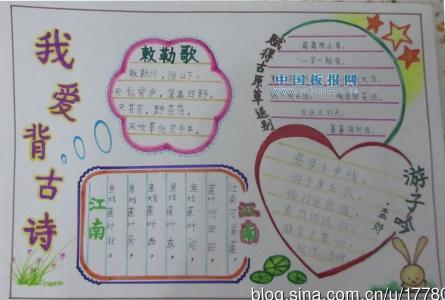 我爱背古诗
敕勒歌
敕勒川，阴山下。
天似穹庐，笼盖四野。
天苍苍，野茫茫，
风吹草低见牛羊。
赋得古原草送别
离离原上草，
一岁一枯荣。
中国板报网
萋萋满别情。
江南
江南可采莲，
莲叶何田田，
鱼戏莲叶间，
鱼戏莲叶东，
鱼戏莲叶西，
鱼戏莲叶南，
鱼戏莲叶北。
江南
游子吟
孟郊
慈母手中线，
游子身上衣，
临行密密缝，
意恐迟迟归，
blog.sina.com.cn/u/17780